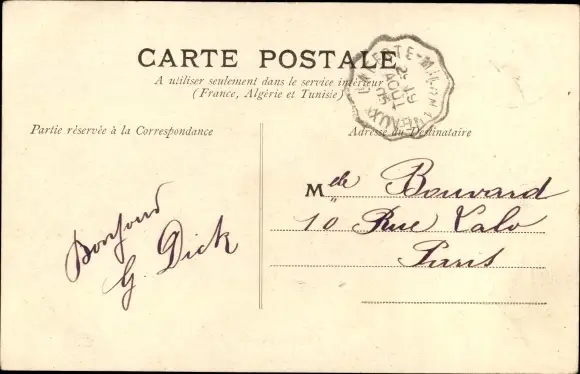 CARTE POSTALE
A utiliser seulement dans le service intérieur
(France, Algérie et Tunisie)
Partie réservée à la Correspondance
Adresse du Destinataire
Bonjour
G. Dick
Melle Bouvard
10 Rue Lalo
Paris